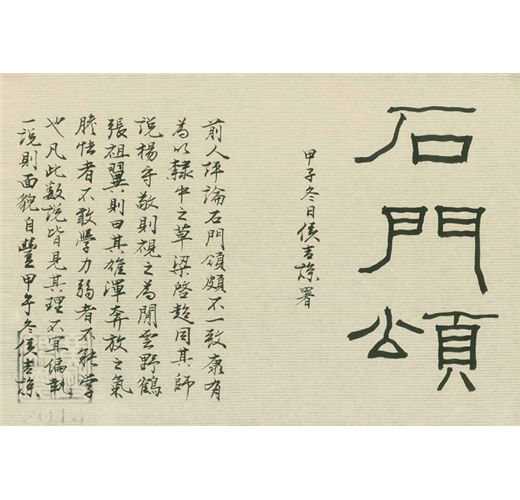 石門頌
甲子冬日侯吉諒署
前人評論石門頌頗不一致康有
為以隸中之草梁啓超同其師
說楊守敬則視之為閒雲野鶴
張祖翼則曰其雄渾奔放之氣
膽怯者不敢學力弱者不能學
也凡此數說皆見其理不宜偏執
一說則面貌自豐甲午冬侯吉諒